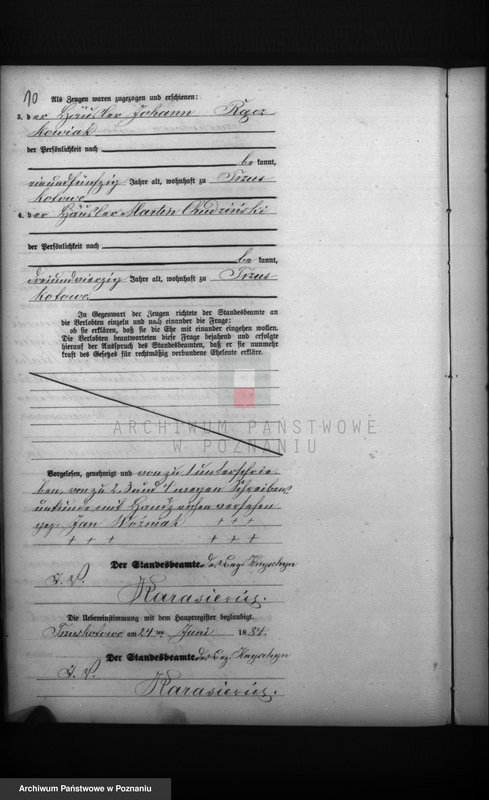 10
Als Zeugen waren zugezogen und erschienen:
3. der Häusler Johann Racz
kowiak
der Persönlichkeit nach
be kannt,
einundfünfzig Jahre alt, wohnhaft zu Trzus
kotowo
4. der Häusler Martin Chudziński
der Persönlichkeit nach
be kannt,
dreiundvierzig Jahre alt, wohnhaft zu Trzus
kotowo
In Gegenwart der Zeugen richtete der Standesbeamte an
die Verlobten einzeln und nach einander die Frage:
ob sie erklären, daß sie die Ehe mit einander eingehen wollen.
Die Verlobten beantworteten diese Frage bejahend und erfolgte
hierauf der Ausspruch des Standesbeamten, daß er sie nunmehr
kraft des Gesetzes für rechtmäßig verbundene Eheleute erkläre.
ARCHIWUM PAŃSTWOWE
W POZNANIU
Vorgelesen, genehmigt und von zu 1 unterschrie
ben, von zu 2, 3 und 4 wegen Schreibens
unkunde mit Handzeichen versehen
gez. Jan Wozniak +++
+ + + + + +
Der Standesbeamte des Bez.
J. V.
Karasiewicz.
Die Uebereinstimmung mit dem Hauptregister beglaubigt.
Trzuskotowo am 24 ten Juni 1884.
Der Standesbeamte des Bez.
J. V.
Karasiewicz.
Archiwum Państwowe w Poznaniu